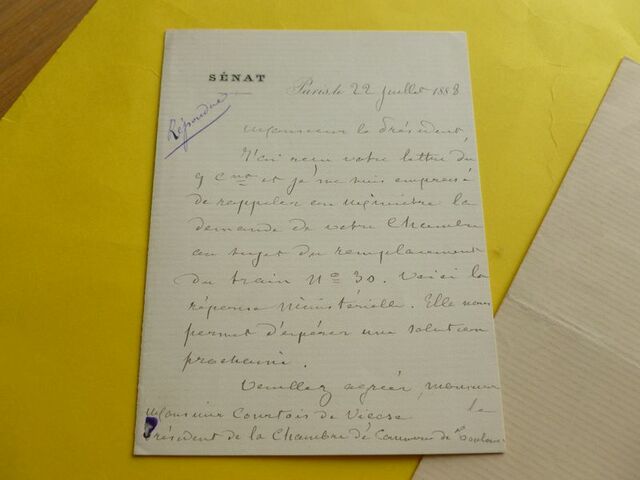 SÉNAT
Paris le 22 juillet 1888
Répondue
Monsieur le Président,
J'ai reçu votre lettre du
9 ct et je me suis empressé
de rappeler au Ministère la
demande de votre Chambre
au sujet du remplacement
du train No 30. Voici la
réponse ministérielle. Elle nous
permet d'espérer une solution
prochaine.
Veuillez agréer, Monsieur
le
Monsieur Courtois de Viçose
Président de la Chambre de Commerce de Toulouse